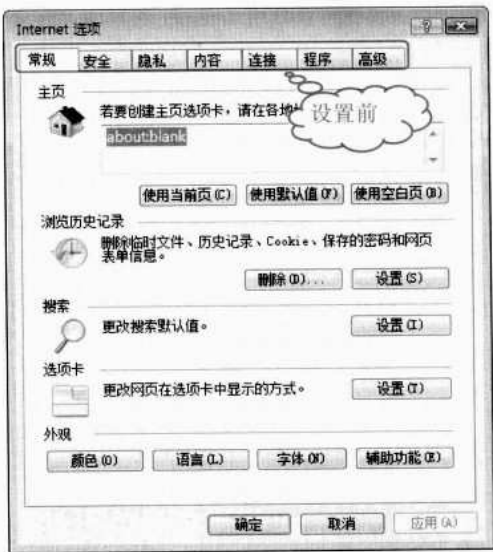 Internet 选项
常规 安全 隐私 内容 连接 程序 高级
主页
若要创建主页选项卡，请在各地
设置前
about:blank
使用当前页(C) 使用默认值(F) 使用空白页(B)
浏览历史记录
删除临时文件、历史记录、Cookie、保存的密码和网页
表单信息。
删除(D)... 设置(S)
搜索
更改搜索默认值。
设置(I)
选项卡
更改网页在选项卡中显示的方式。
设置(T)
外观
颜色(O) 语言(L) 字体(N) 辅助功能(E)
确定 取消 应用(A)